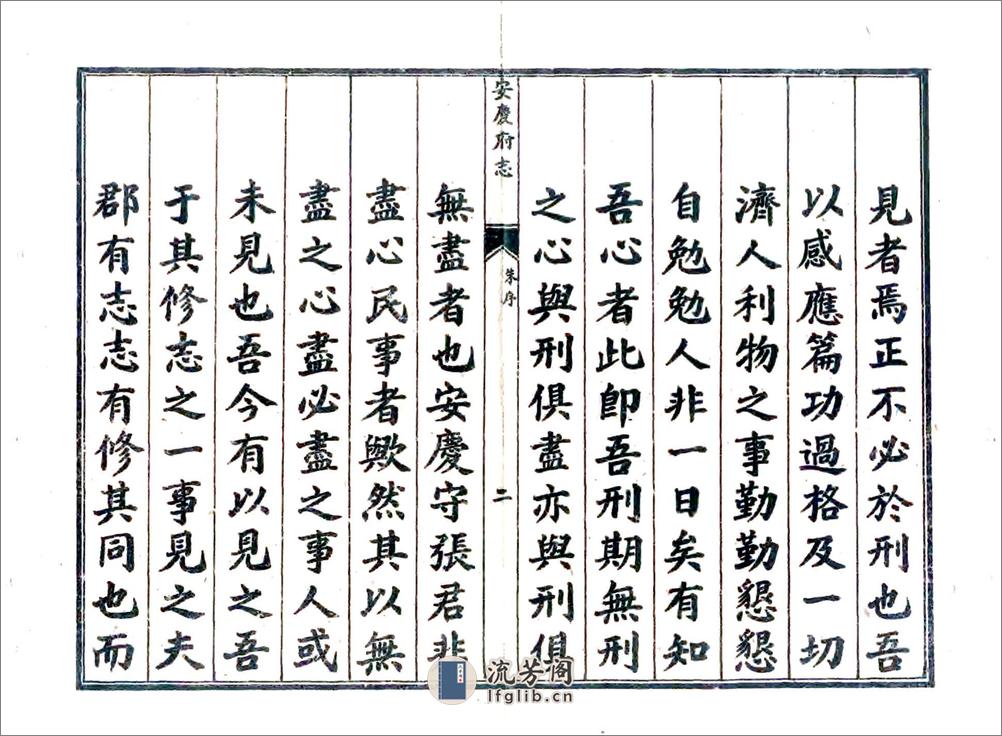 見者焉正不必於刑也吾
以感應篇功過格及一切
濟人利物之事勤勤懇懇
自勉勉人非一日矣有知
吾心者此即吾刑期無刑
之心與刑俱盡亦與刑俱
安慶府志
朱序
二
無盡者也安慶守張君非
盡心民事者歟然其以無
盡之心盡必盡之事人或
未見也吾今有以見之吾
于其修志之一事見之夫
郡有志志有修其同也而
流芳阁
lfglib.cn